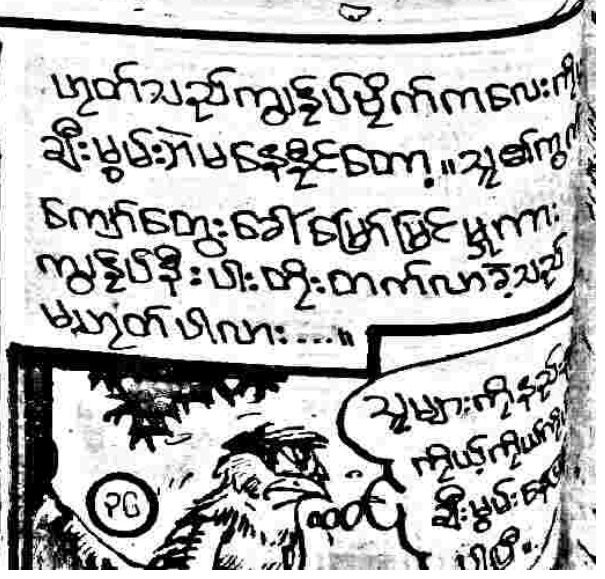 ဟုတ်သည်ကျွန်ုပ်မိုက်ကလေးကို
ချီးမွမ်းဘဲမနေနိုင်တော့။သူ၏
ကျော်တွေးခေါ်မြော်မြင်မှုကား
ကျွန်ုပ်နှီးပါးတိုးတက်လာခဲ့သည်
မဟုတ်ပါလား...။
သူများကိုနည်း
ကိုယ့်ကိုယ်ကို
ချီးမွမ်းနေ
ပါပြီ။
PG